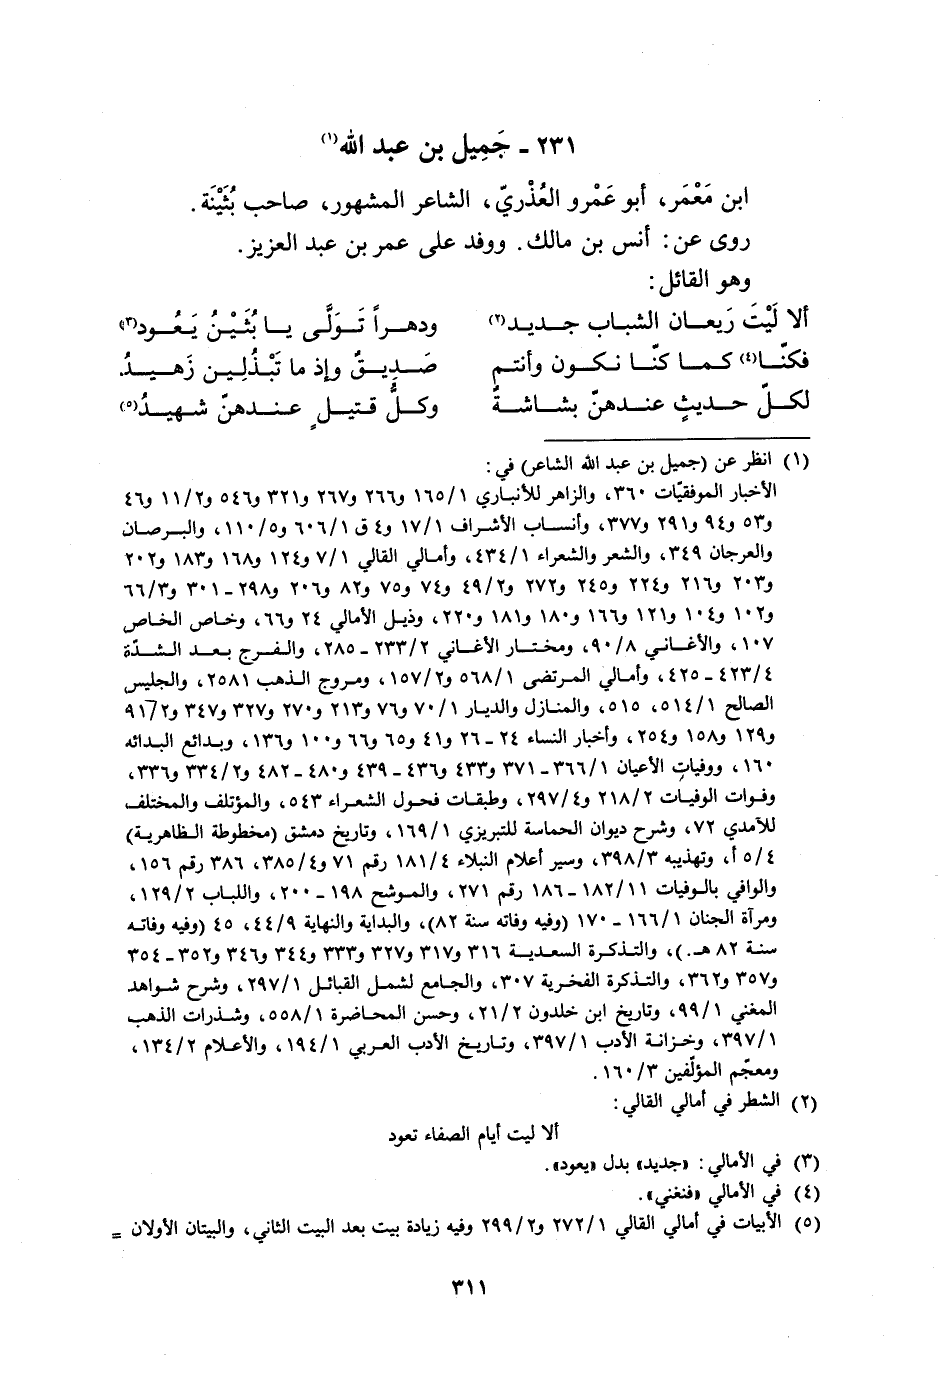 ٢٣١ ـ جَمِيل بن عبد الله(١)
ابن مَعْمَر، أبو عَمْرو العُذْريّ، الشاعر المشهور، صاحب بُثَيْنَة.
روى عن: أنس بن مالك. ووفد على عمر بن عبد العزيز.
وهو القائل:
ألا لَيْتَ رَيعـان الشباب جـديـد(٢) ودهـراً تَـوَلَّى يـا بُثَيْـنُ يَعُـود(٣)
فكنّـا(٤) كـمـا كنّـا نـكـون وأنتـم صَـدِيـقٌ وإذ ما تَبْـذُلِيـن زَهيـدُ.
لكـلّ حـديثٍ عنـدهنّ بشـاشـةً وكـلُّ قـتيـلٍ عنـدهنّ شهيـدُ(٥)
(١) انظر عن (جميل بن عبد الله الشاعر) في:
الأخبار الموفقيّات ٣٦٠، والزاهر للأنباري ١٦٥/١ و٢٦٦ و٢٦٧ و٣٢١ و٥٤٦ و١١/٢ و٤٦
و٥٣ و٩٤ و٢٩١ و٣٧٧، وأنساب الأشراف ١٧/١ و٤ ق ٦٠٦/١ و١١٠/٥، والبـرصـان
والعرجان ٣٤٩، والشعر والشعراء ٤٣٤/١، وأمالي القالي ٧/١ و١٢٤ و١٦٨ و١٨٣ و٢٠٢
و٢٠٣ و٢١٦ و٢٢٤ و٢٤٥ و٢٧٢ و٤٩/٢ و٧٤ و٧٥ و٨٢ و٢٠٦ و٢٩٨ـ ٣٠١ و٦٦/٣
و١٠٢ و١٠٤ و١٢١ و١٦٦ و١٨٠ و١٨١ و٢٢٠، وذيـل الأمالي ٢٤ و٦٦، وخـاص الخـاص
١٠٧، والأغـانـي ٩٠/٨، ومختـار الأغـاني ٢٣٣/٢ ـ ٢٨٥، والـفـرج بـعـد الـشـدّة
٤٢٣/٤ ـ ٤٢٥، وأمـالي المـرتضى ٥٦٨/١ و١٥٧/٢، ومـروج الـذهب ٢٥٨١، والجليس
الصالح ٥١٤/١، ٥١٥، والمنازل والديار ٧٠/١ و٧٦ و٢١٣ و٢٧٠ و٣٢٧ و٣٤٧ و٩١/٢
و١٢٩ و١٥٨ و٢٥٤، وأخبار النساء ٢٤ ـ ٢٦ و٤١ و٦٥ و٦٦ و١٠٠ و١٣٦، وبـدائع البدائه
١٦٠، ووفيات الأعيان ٣٦٦/١ ـ ٣٧١ و٤٣٣ و٤٣٦ ـ ٤٣٩ و٤٨٠ ـ ٤٨٢ و٣٣٤/٢ و٣٣٦،
وفـوات الوفيـات ٢١٨/٢ و٢٩٧/٤، وطبقـات فحول الشعـراء ٥٤٣، والمؤتلف والمختلف
للآمدي ٧٢، وشرح ديوان الحماسة للتبريزي ١٦٩/١، وتاريخ دمشق (مخطوطة الـظاهرية)
٥/٤ أ، وتهذيبه ٣٩٨/٣، وسير أعلام النبلاء ١٨١/٤ رقم ٧١ و٣٨٥/٤، ٣٨٦ رقم ١٥٦،
والوافي بالـوفيات ١٨٢/١١ ـ ١٨٦ رقم ٢٧١، والمـوشح ١٩٨ ـ ٢٠٠، واللباب ١٢٩/٢،
ومرآة الجنان ١٦٦/١ ـ ١٧٠ (وفيه وفاته سنة ٨٢)، والبداية والنهاية ٤٤/٩، ٤٥ (وفيه وفاتـه
سنـة ٨٢ هـ.)، والتـذكـرة السعـديـة ٣١٦ و٣١٧ و٣٢٧ و٣٣٣ و٣٤٤ و٣٤٦ و٣٥٢ـ ٣٥٤
و٣٥٧ و٣٦٢، والتـذكرة الفخرية ٣٠٧، والجامع لشمـل القبائـل ٢٩٧/١، وشرح شـواهد
المغني ٩٩/١، وتاريخ ابن خلدون ٢١/٢، وحسن المحـاضرة ٥٥٨/١، وشـذرات الذهب
٣٩٧/١، وخـزانـة الأدب ٣٩٧/١، وتـاريـخ الأدب العـربي ١٩٤/١، والأعـلام ١٣٤/٢،
ومعجّم المؤلّفين ١٦٠/٣.
(٢) الشطر في أمالي القالي:
ألا ليت أيام الصفاء تعود
(٣) في الأمالي: «جديد» بدل «يعود».
(٤) في الأمالي «فنغني».
(٥) الأبيات في أمالي القالي ٢٧٢/١ و٢٩٩/٢ وفيه زيادة بيت بعد البيت الثاني، والبيتان الأولان =
٣١١